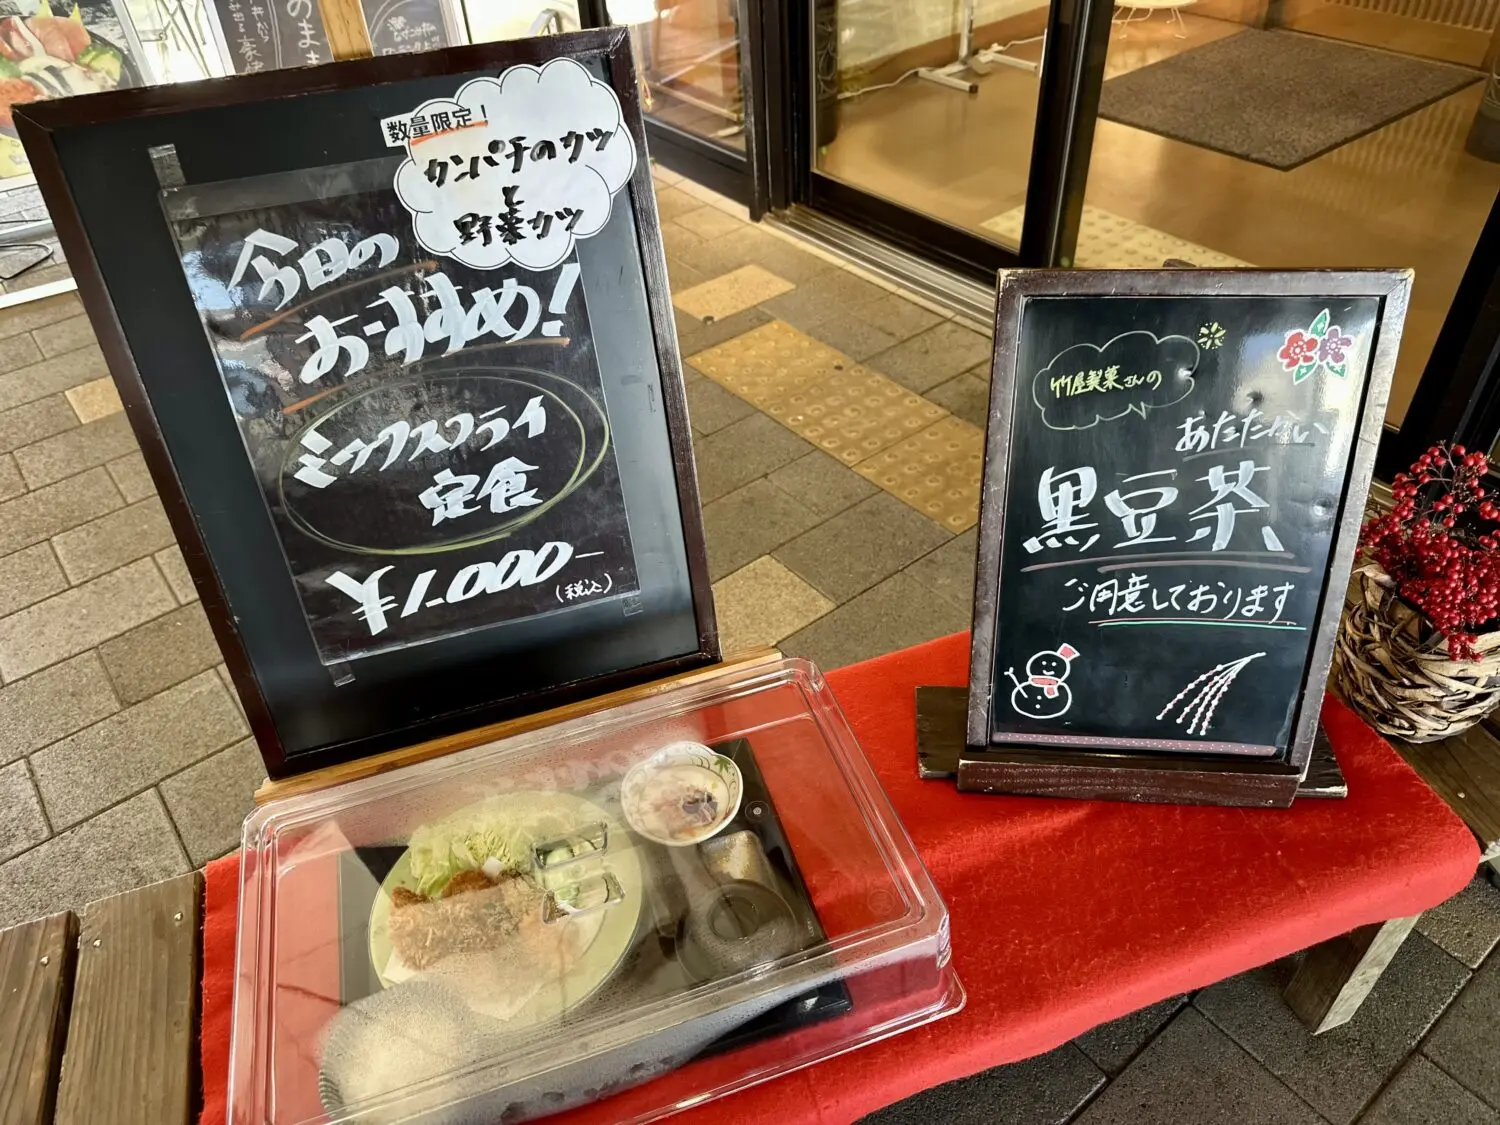 数量限定！
カンパチのカツ
と
野菜カツ
今日の
おすすめ！
ミックスフライ
定食
¥1,000-
(税込)
竹屋製菓さんの
あたたかい
黒豆茶
ご用意しております